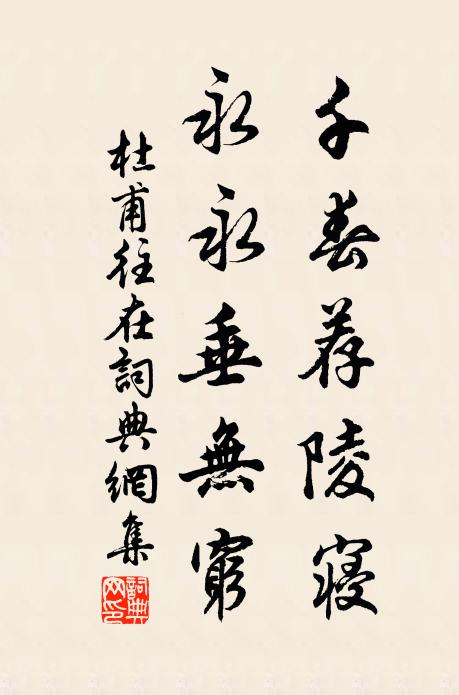 千春荐陵寝
永永垂無窮
杜甫往在詞典網集
詞典网印